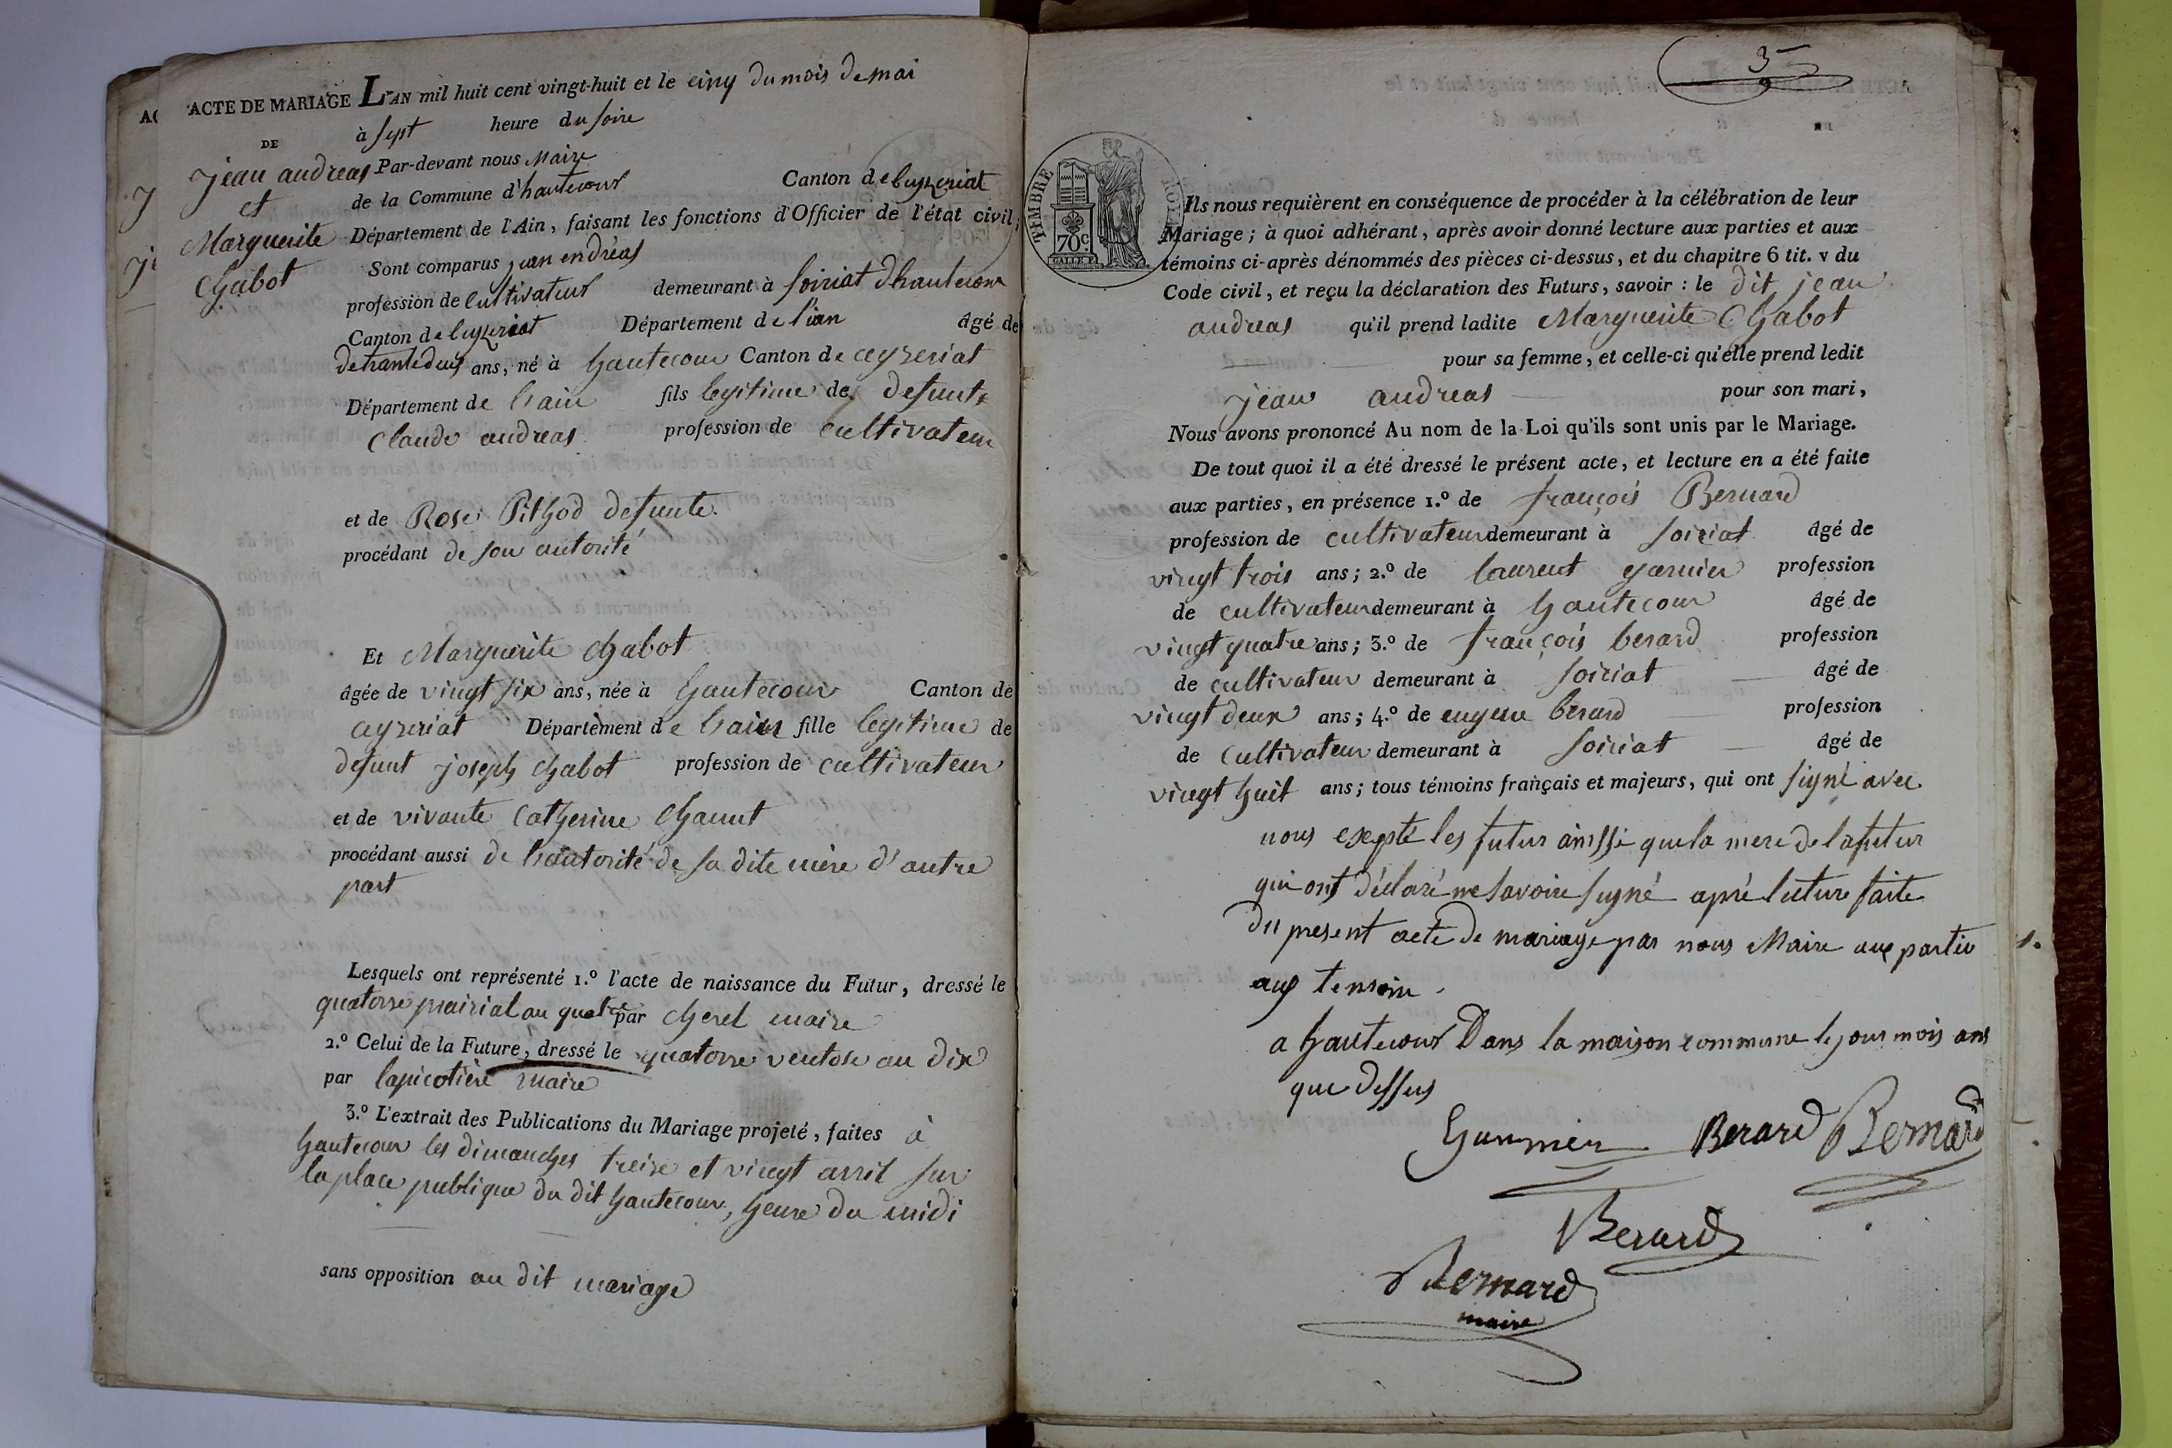 ACTE DE MARIAGE L'AN mil huit cent vingt-huit et le cinq du mois de mai
DE
à sept heure du soire
jean andreas
et
Marguerite
Chabot
Par-devant nous Maire
de la Commune d'hautecour Canton de ceyzeriat
Département de l'Ain, faisant les fonctions d'Officier de l'état civil,
Sont comparus jean endréas
profession de Cultivateur demeurant à soiriat dhautecour
Canton de ceyzeriat Département de l'ian âgé de
detrantedeux ans, né à hautecour Canton de ceyzeriat
Département de Lain fils legitime de defunts
Claude andreas profession de cultivateur
et de Rose Pithod defunte
procédant de son autorité
Et Marguerite Chabot
âgée de vingt six ans, née à hautecour Canton de
ceyzeriat Département de Lain fille legitime de
defunt joseph Chabot profession de cultivateur
et de vivante Catherine
procédant aussi de Lautorité de sa dite mère d'autre
part
Lesquels ont représenté 1.º l'acte de naissance du Futur, dressé le
quatorse prairial an quatre par Cherel maire
2.º Celui de la Future, dressé le quatorse ventose an dix
par lapicotière maire
3.º L'extrait des Publications du Mariage projeté, faites à
hautecour les dimanches treise et vingt avril sur
la place publique du dit hautecour, heure du midi
sans opposition au dit mariage
3
TIMBRE ROYAL
70 c
Ils nous requièrent en conséquence de procéder à la célébration de leur
Mariage; à quoi adhérant, après avoir donné lecture aux parties et aux
témoins ci-après dénommés des pièces ci-dessus, et du chapitre 6 tit. v du
Code civil, et reçu la déclaration des Futurs, savoir : le dit jean
andreas qu'il prend ladite Marguerite Chabot
pour sa femme, et celle-ci qu'elle prend ledit
jean andreas pour son mari,
Nous avons prononcé Au nom de la Loi qu'ils sont unis par le Mariage.
De tout quoi il a été dressé le présent acte, et lecture en a été faite
aux parties, en présence 1.º de françois Bernard
profession de cultivateur demeurant à soiriat âgé de
vingt trois ans; 2.º de laurent garnier profession
de cultivateur demeurant à hautecour âgé de
vingt quatre ans; 3.º de françois berard profession
de cultivateur demeurant à soiriat âgé de
vingt deux ans; 4.º de eugene berard profession
de Cultivateur demeurant à soiriat âgé de
vingt huit ans; tous témoins français et majeurs, qui ont signé avec
nous exepté les futur ainssi que la mere de lafutur
qui ont déclaré ne savoire signé apré luture faite
du present acte de mariage par nous Maire aux partie
aux temoin.
a hautecour Dans la maison commune le jour mois ans
que dessus
Garnier Berard Bernard
Berard
Bernard
maire